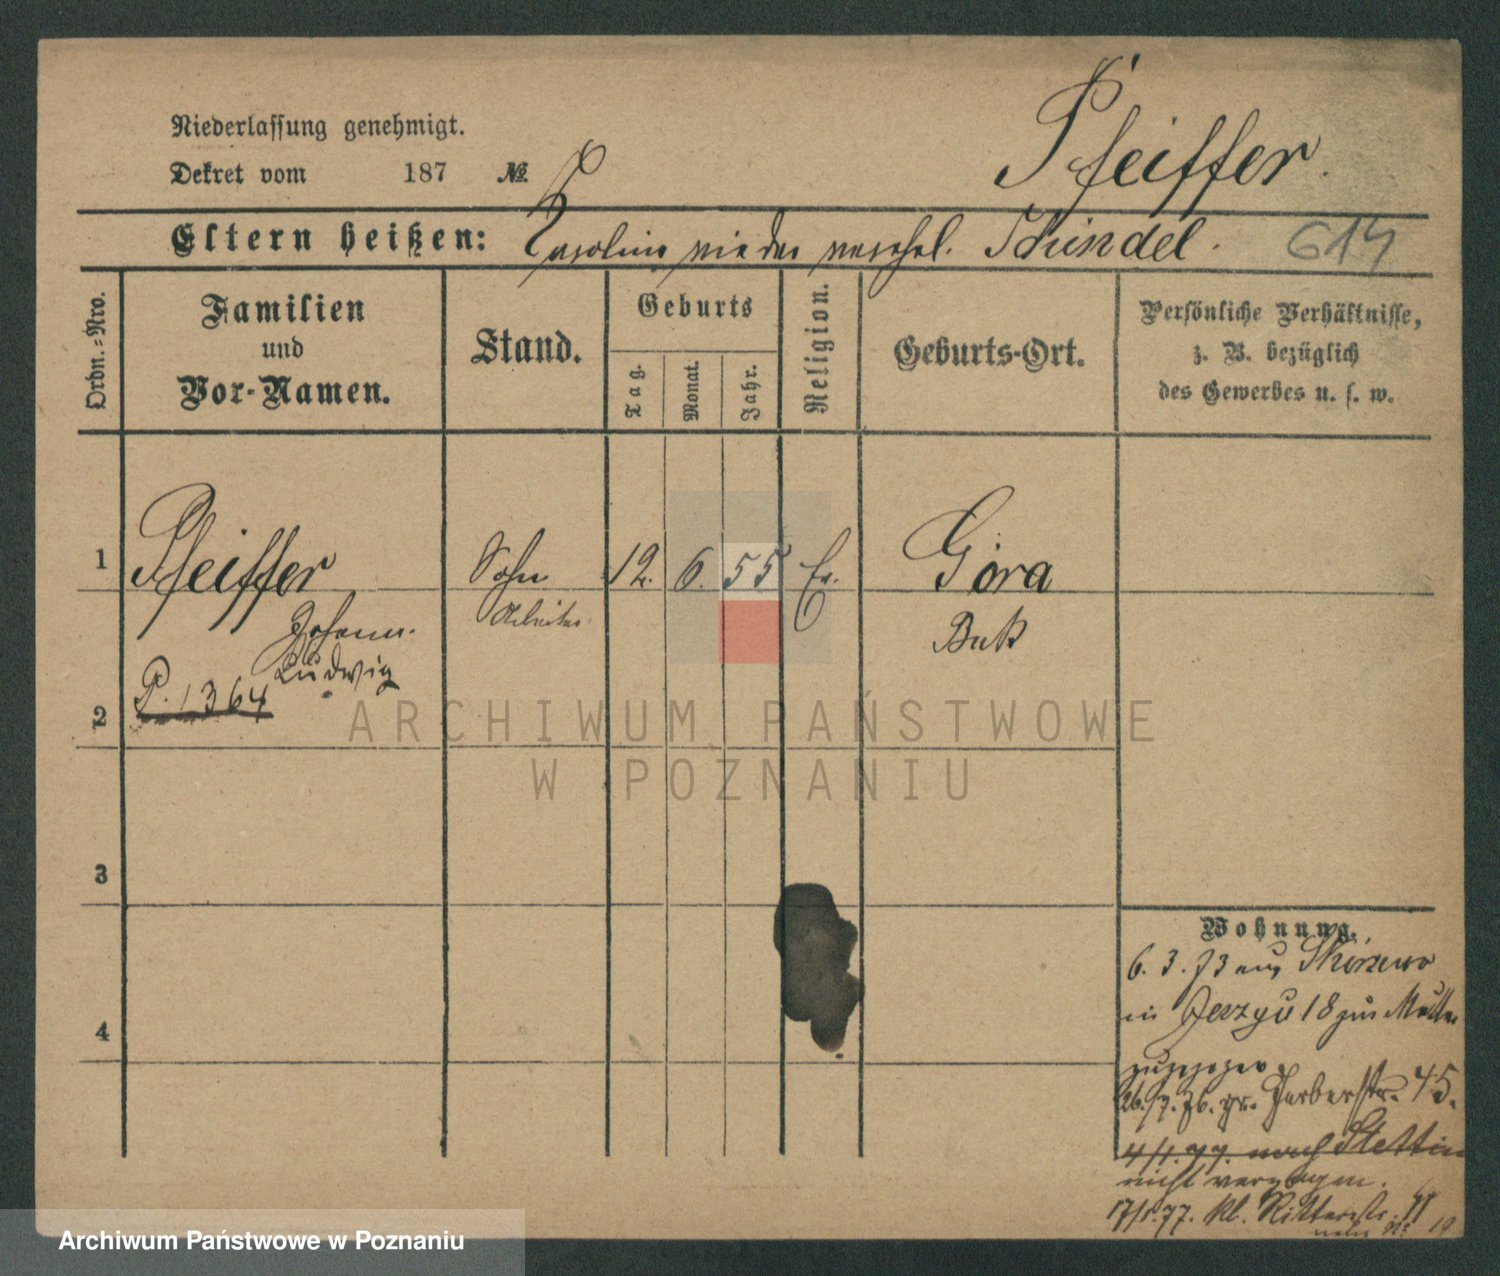 Pfeiffer.
Niederlassung genehmigt.
Dekret vom 187 №
Eltern heißen: Karoline wieder verehel. Kündel. 614
Ordn.-Nro.
Familien
und
Vor-Namen.
Stand.
Geburts
Tag.
Monat.
Jahr.
Religion.
Geburts-Ort.
Persönliche Verhältnisse,
z. B. bezüglich
des Gewerbes u. s. w.
1 Pfeiffer Sohn 12. 6. 55 Ev. Góra
Johann Arbeiter Buk
Ludwig
P. 1364
2
3
4
Wohnung.
6. 3. 73 aus
in Jerzyu 18 zur Mutter
zugezogen
26./9. 76. gr. Gerberstr. 45.
4/1. 77. nach Stettin
nicht verzogen.
17/1. 77. kl. Ritterstr.
19
ARCHIWUM PAŃSTWOWE
W POZNANIU
Archiwum Państwowe w Poznaniu